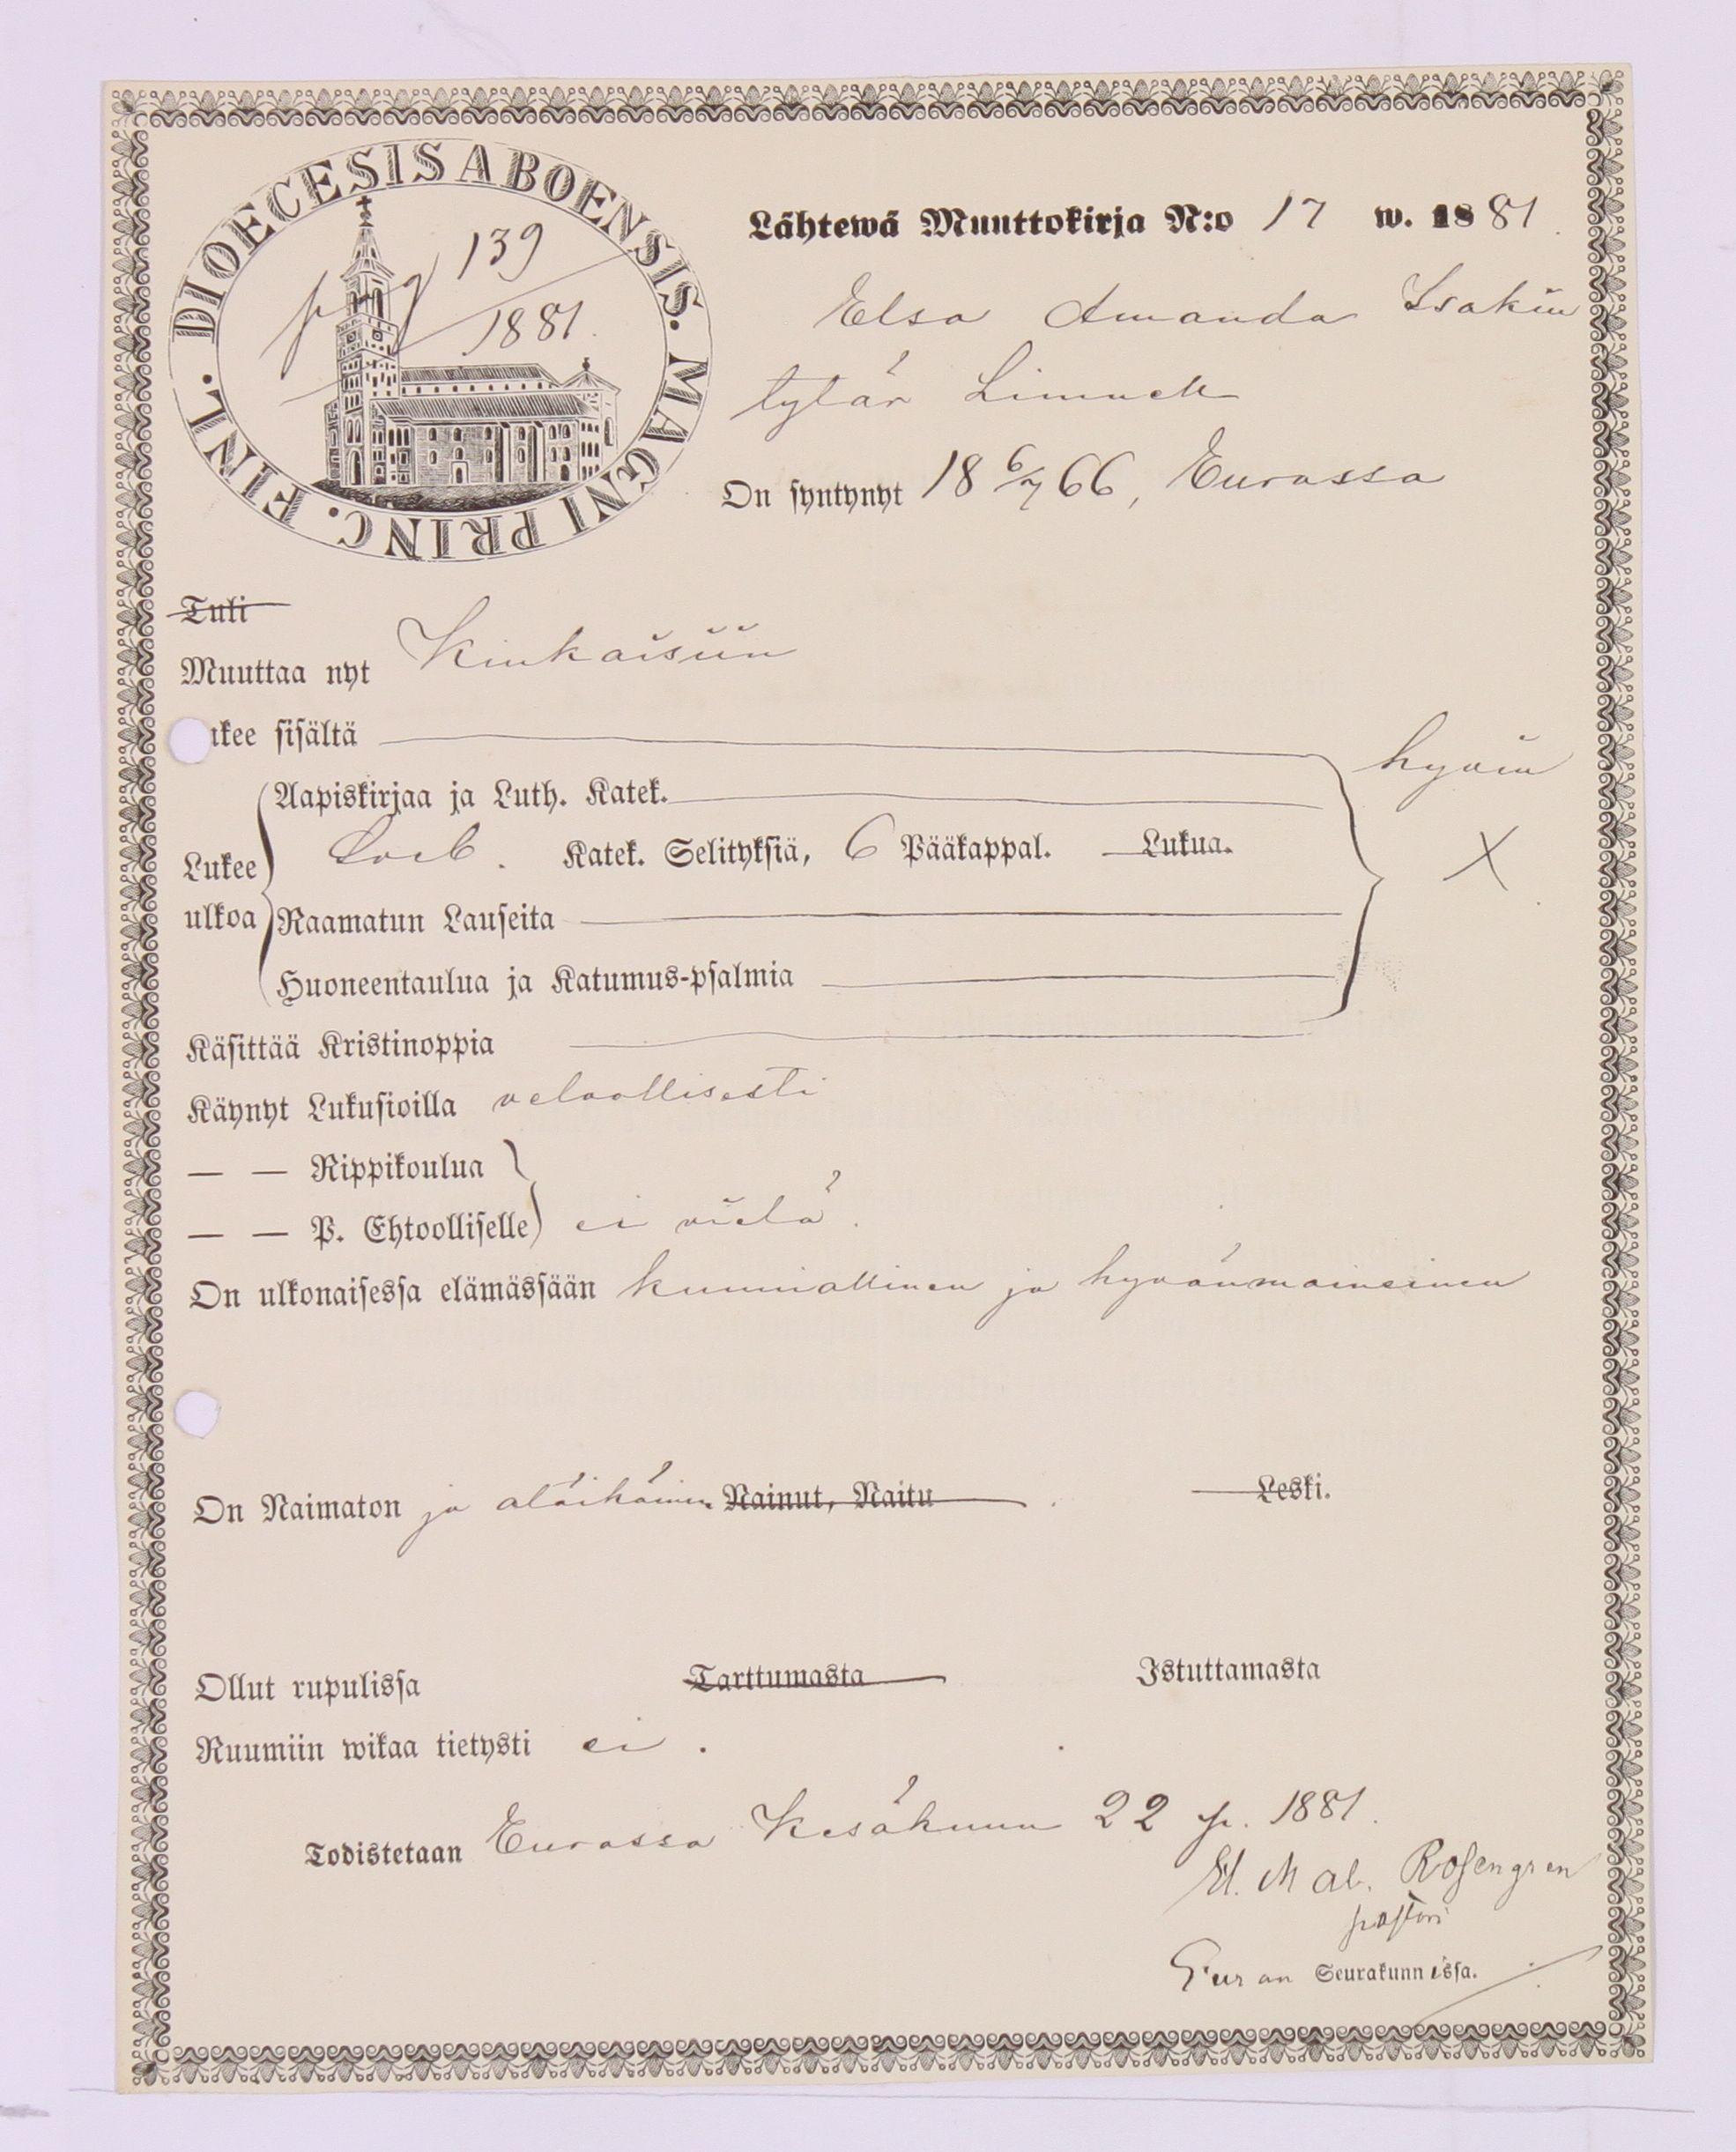 DIOECESIS ABOENSIS. MAGNI PRINC. FINL.
pag 139
1881.
Lähtewä Muuttokirja N:o 17 w. 1881.
Elsa Amanda Isakin
tytär
On syntynyt 18 6/7 66, Eurassa
Tuli
Muuttaa nyt Kiukaisiin
ukee sisältä hyvin
Aapiskirjaa ja Luth. Katek.
Lukee Katek. Selityksiä, 6 Pääkappal. Lukua. X
ulkoa Raamatun Lauseita
Huoneentaulua ja Katumus-psalmia
Käsittää Kristinoppia
Käynyt Lukusioilla velvollisesti
— — Rippikoulua
— — P. Ehtoolliselle ei vielä.
On ulkonaisessa elämässään kunniallinen ja hyvänmaineinen
On Naimaton ja alaikäinen Nainut, Naitu. Leski.
Ollut rupulissa Tarttumasta Istuttamasta
Ruumiin wikaa tietysti ei.
Todistetaan Eurassa Kesäkuun 22 p. 1881.
Rosengren
pastori
Euran Seurakunnissa.